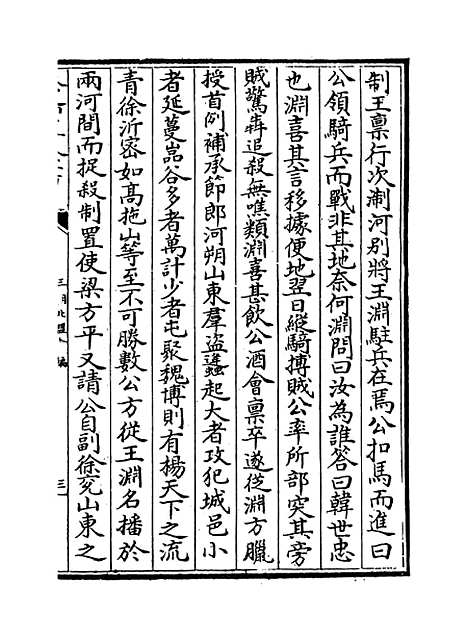 制王禀行次淛河别將王淵駐兵在焉公扣馬而進曰
公領騎兵而戰非其地奈何淵問曰汝為誰答曰韓世忠
也淵喜其言移據便地翌日縱騎搏賊公率所部突其旁
賊驚犇追殺無噍類淵喜甚飲公酒會禀卒遂從淵方臘
授首例補承節郎河朔山東羣盗蠭起大者攻犯城邑小
者延蔓嵓谷多者萬計少者屯聚魏博則有楊天下之流
青徐沂密如髙拖山等至不可勝數公方從王淵名播於
兩河間而捉殺制置使梁方平又請公自副徐兖山東之
三朝北盟㑹編
三